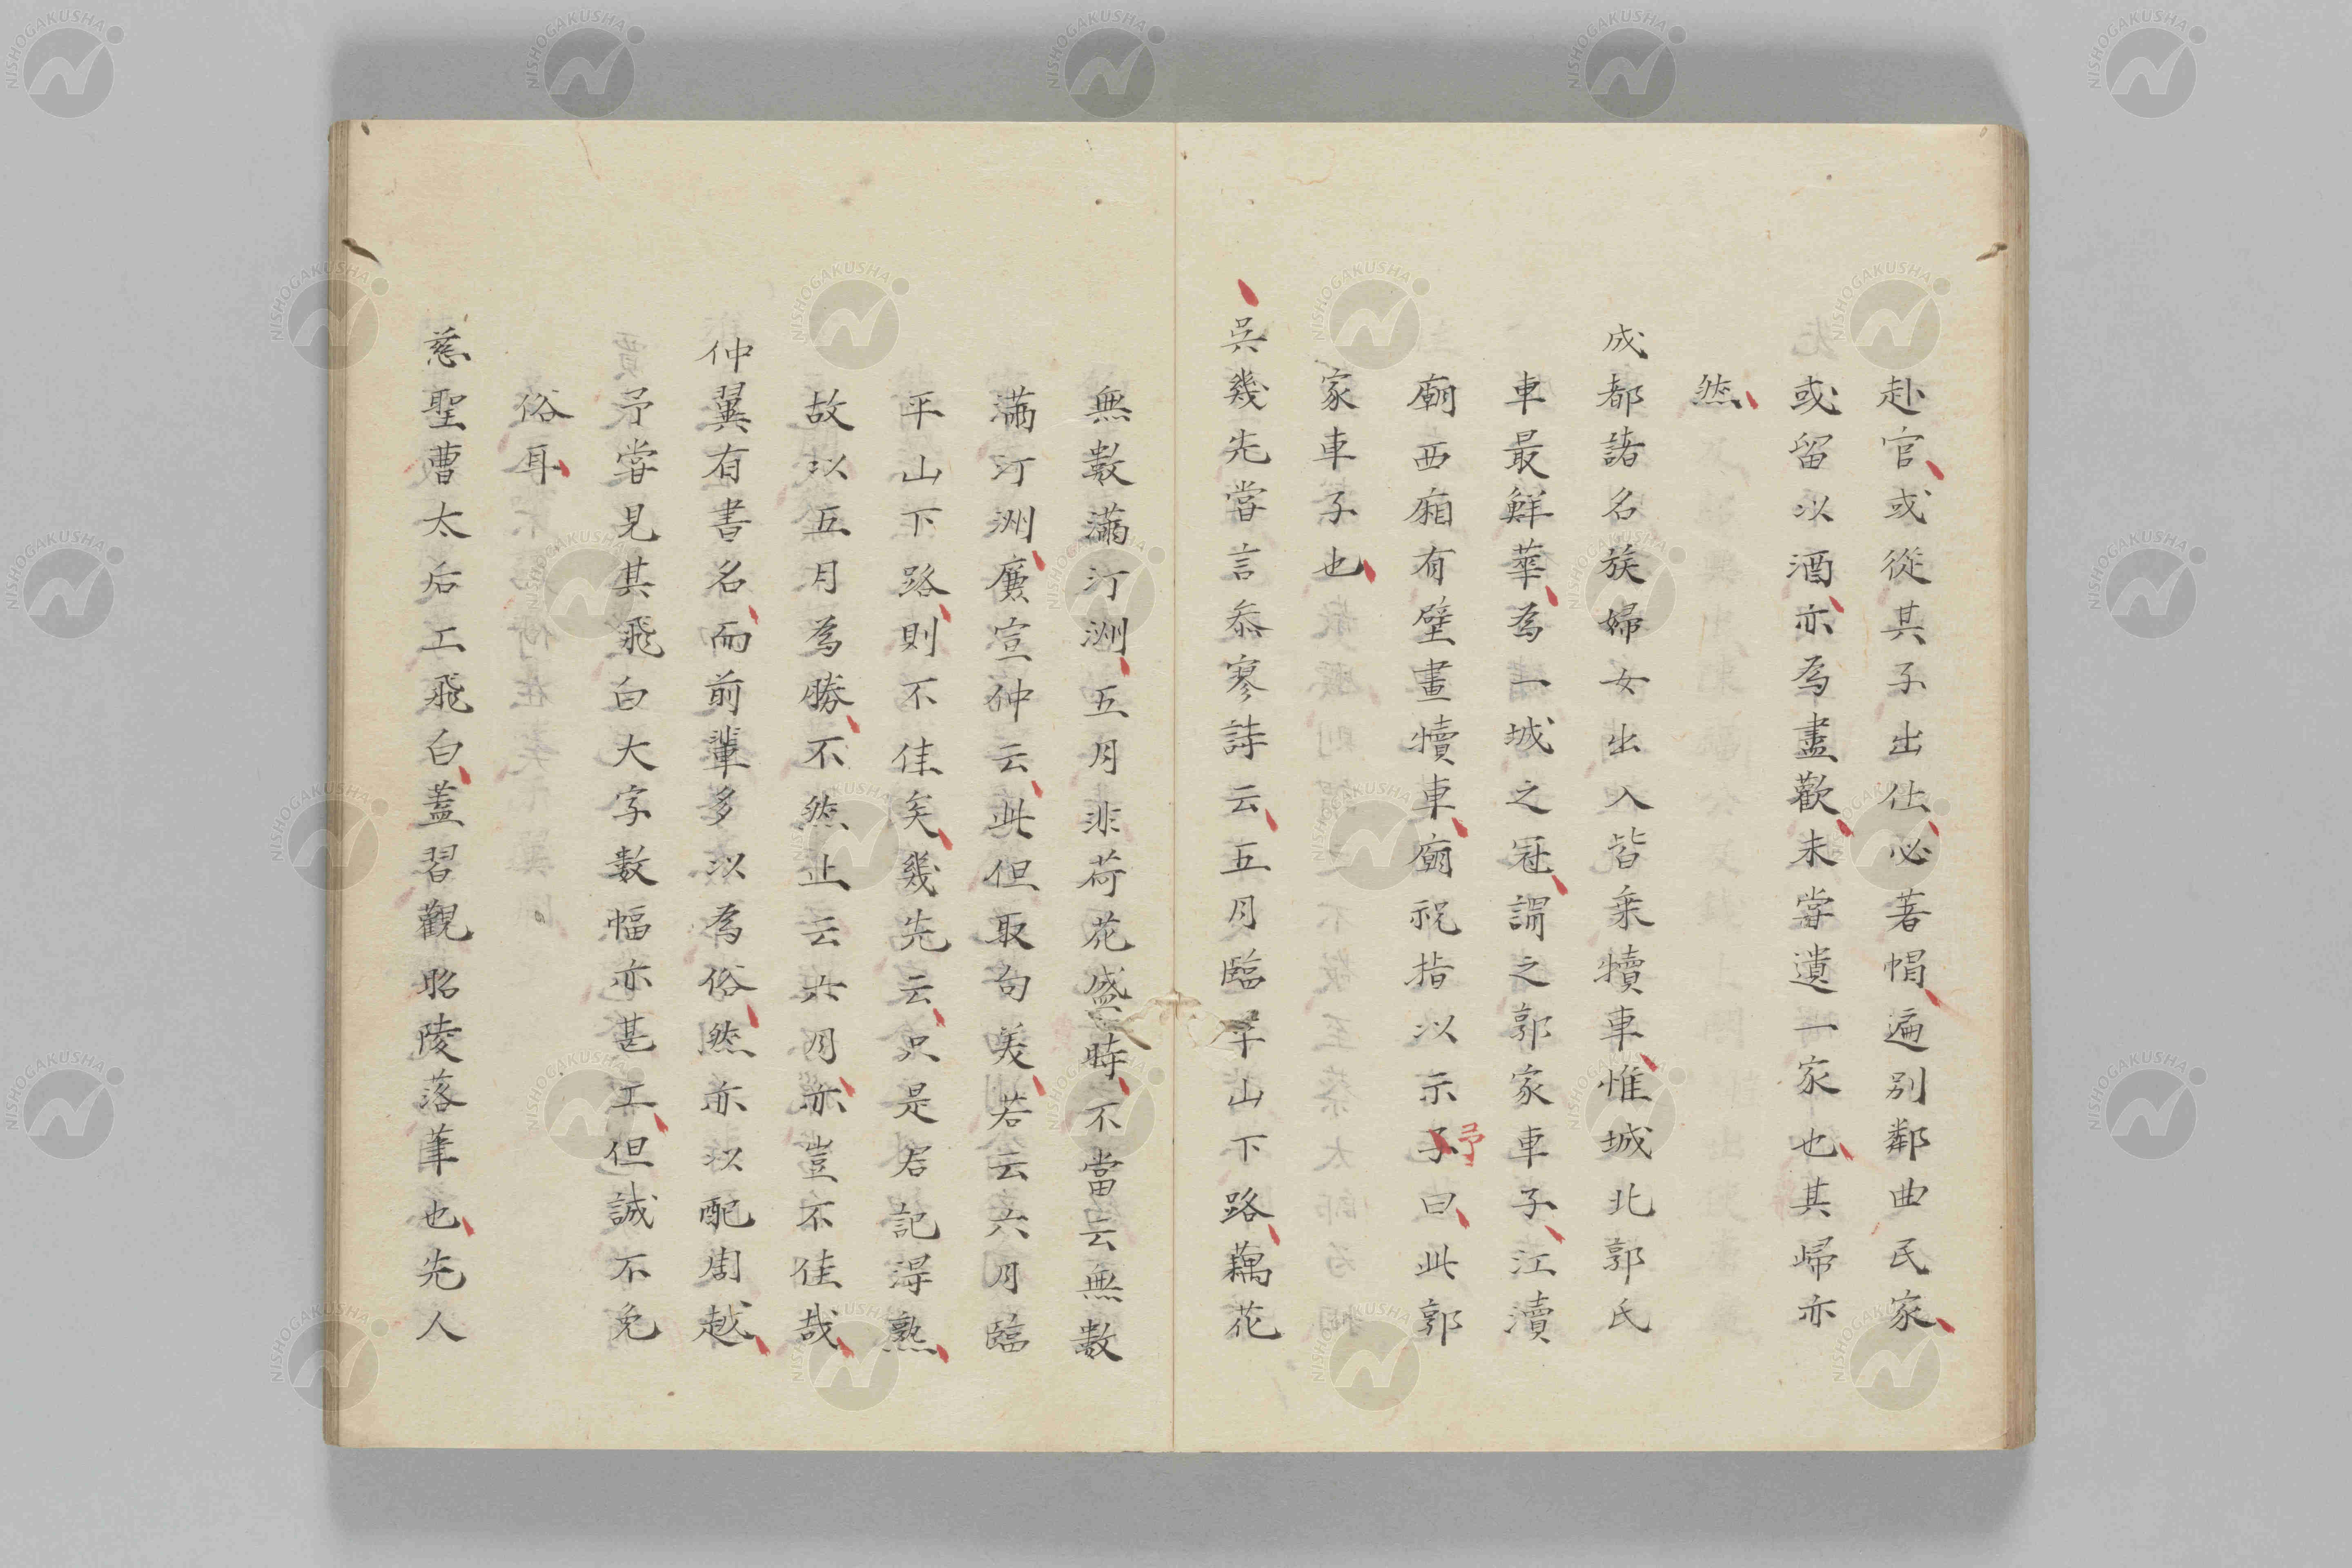 赴官或從其子出仕必著帽遍別鄰曲民家
或留以酒亦為盡歡未甞遺一家也其歸亦
然
成都諸名族婦女出入皆乘犢車惟城北郭氏
車最鮮華為一城之冠謂之郭家車子江瀆
廟西廂有壁畫犢車廟祝指以示子曰此郭
予
家車子也
吳幾先嘗言參寥詩云五月臨平山下路藕花
無數滿汀洲五月非荷花盛時不當云無數
滿汀洲廉宣仲云此但取句美若云六月臨
平山下路則不佳矣幾先云只是君記得熟
故以五月為勝不然止云六月亦豈不佳哉
仲翼有書名而前輩多以為俗然亦以配周越
予甞見其飛白大字數幅亦甚工但誠不免
俗耳
慈聖曹太后工飛白蓋習觀昭陵落筆也先人
NISHOGAKUSHA